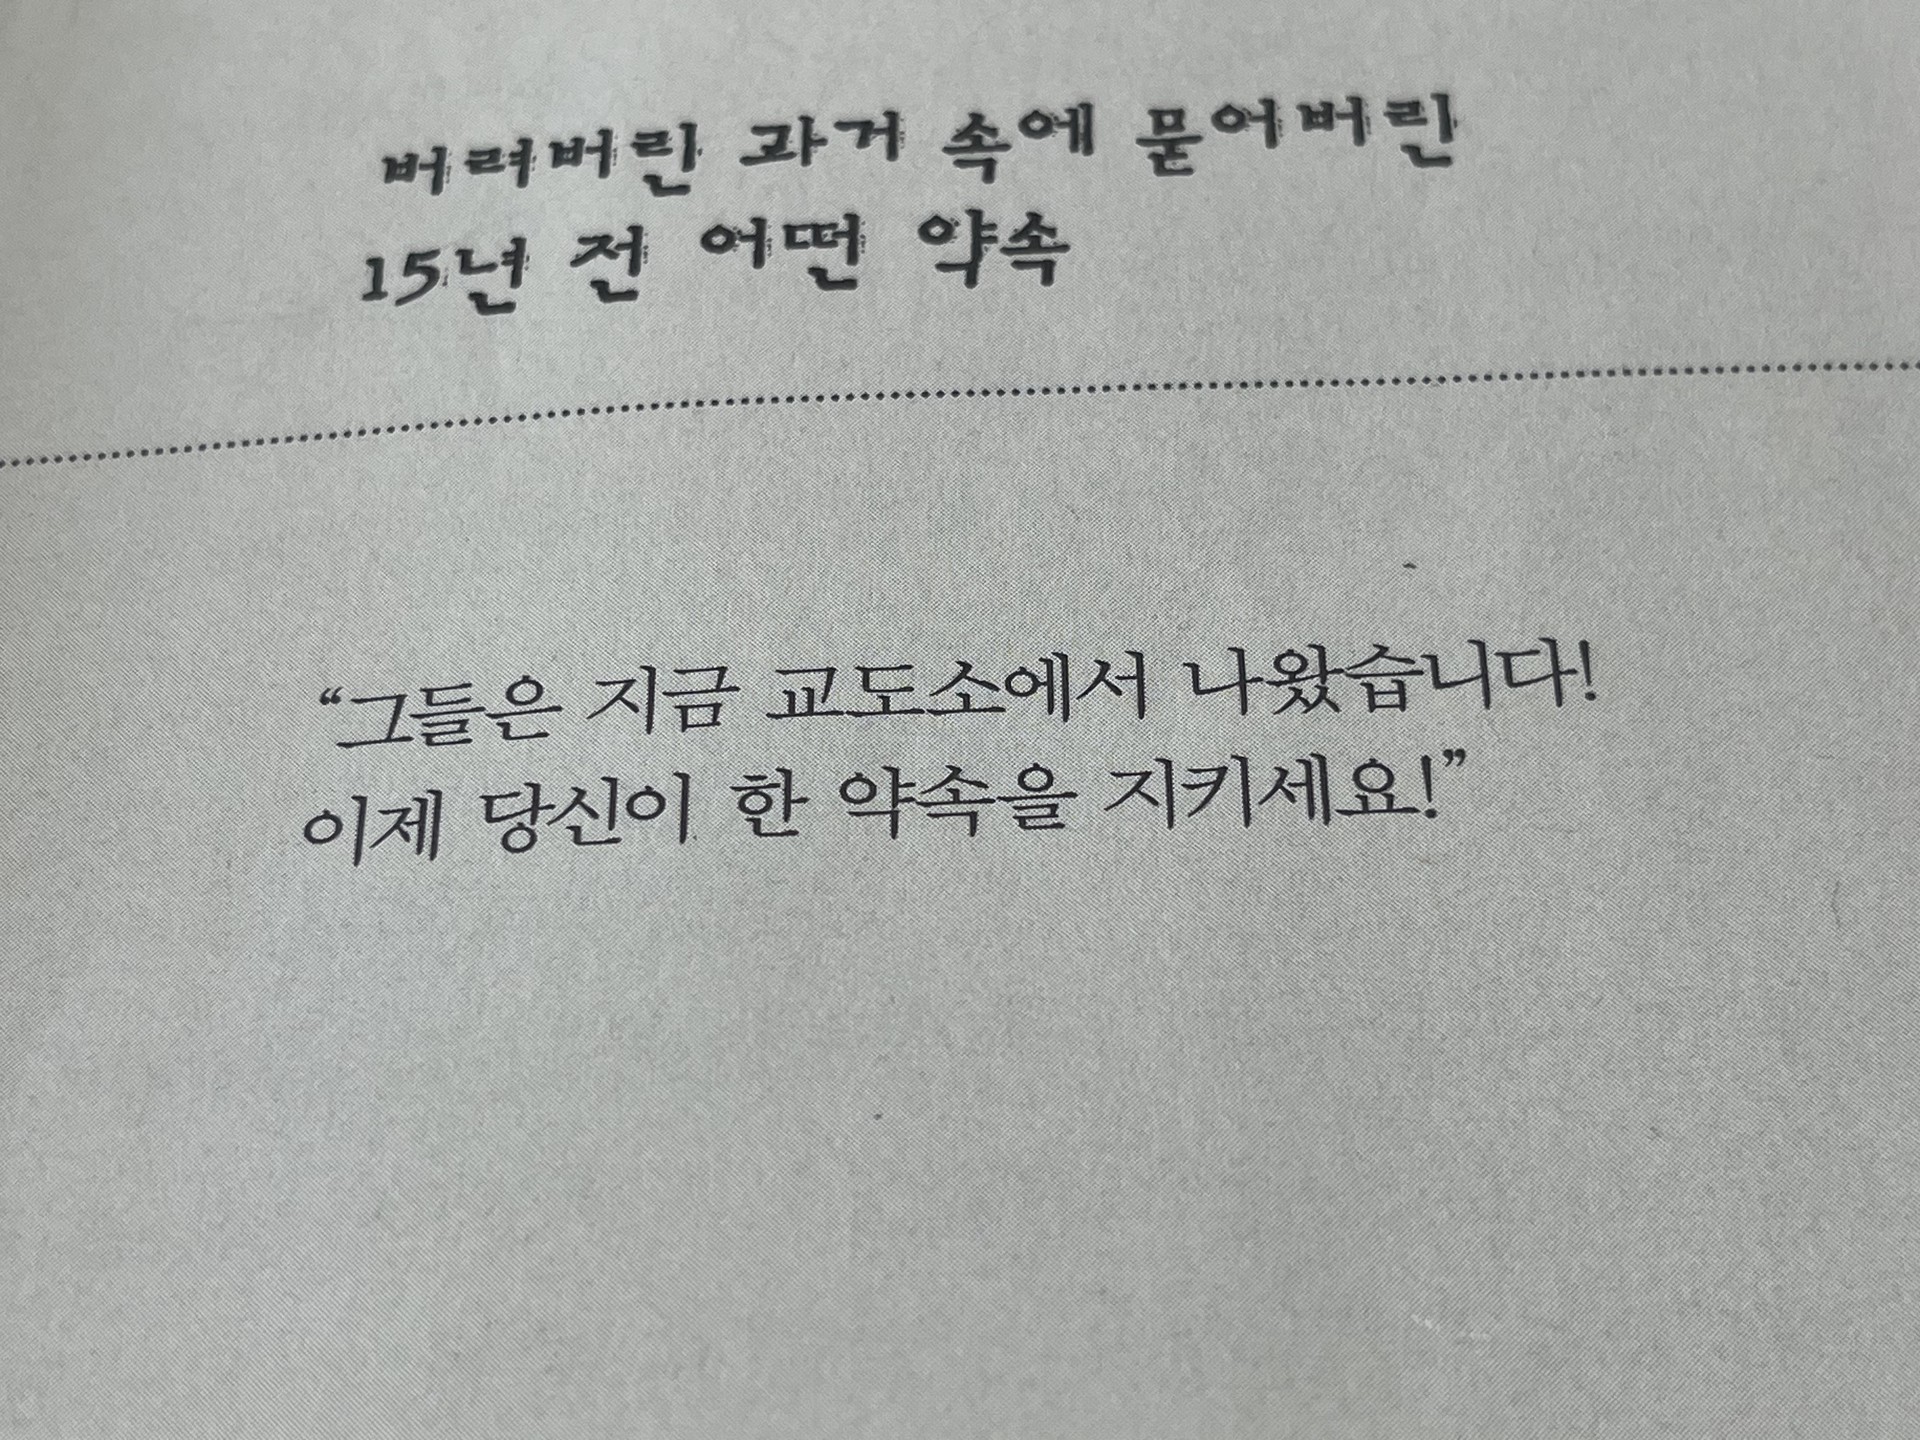 버려버린 과거 속에 묻어버린
15년 전 어떤 약속
“그들은 지금 교도소에서 나왔습니다!
이제 당신이 한 약속을 지키세요!”